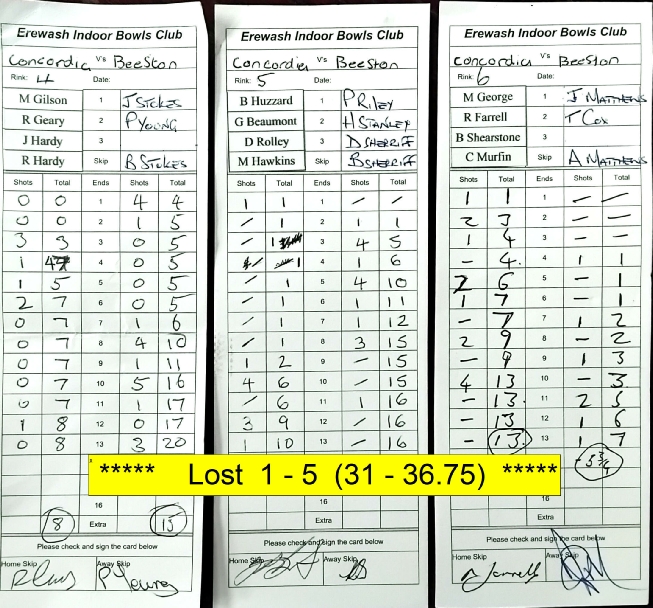 Erewash Indoor Bowls Club
Concordia Vs Beeston
Rink: 4 Date:
M Gilson 1 J STOKES
R Geary 2 P YOUNG
J Hardy 3
R Hardy Skip B STOKES
Shots Total Ends Shots Total
0 0 1 4 4
0 0 2 1 5
3 3 3 0 5
1 4 4 0 5
1 5 5 0 5
2 7 6 0 5
0 7 7 1 6
0 7 8 4 10
0 7 9 1 11
0 7 10 5 16
0 7 11 1 17
1 8 12 0 17
0 8 13 3 20
16
8 Extra 15
Please check and sign the card below
Home Skip Away Skip
P Young
Erewash Indoor Bowls Club
Concordia Vs Beeston
Rink: 5 Date:
B Huzzard 1 P RILEY
G Beaumont 2 H STANLEY
D Rolley 3 D SHERRIFF
M Hawkins Skip B SHERRIFF
Shots Total Ends Shots Total
1 1 1 / /
/ 1 2 1 1
/ 1 3 4 5
/ 1 4 1 6
/ 1 5 4 10
/ 1 6 1 11
/ 1 7 1 12
/ 1 8 3 15
1 2 9 - 15
4 6 10 / 15
/ 6 11 1 16
3 9 12 / 16
1 10 13 - 16
16
Extra
Please check and sign the card below
Home Skip Away Skip
Erewash Indoor Bowls Club
Concordia Vs Beeston
Rink: 6 Date:
M George 1 J MATTHEWS
R Farrell 2 T COX
B Shearstone 3
C Murfin Skip A MATTHEWS
Shots Total Ends Shots Total
1 1 1 - -
2 3 2 - -
1 4 3 - -
- 4 4 1 1
2 6 5 - 1
1 7 6 - 1
- 7 7 1 2
2 9 8 - 2
- 9 9 1 3
4 13 10 - 3
- 13 11 2 5
- 13 12 1 6
- 13 13 1 7
- 5 3/4
16
Extra
Please check and sign the card below
Home Skip Away Skip
***** Lost 1 - 5 (31 - 36.75) *****